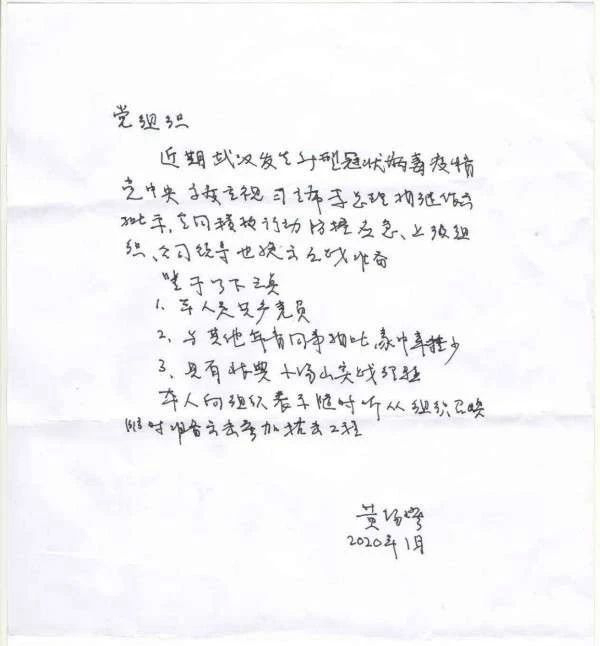 党组织
近期武汉发生新型冠状病毒疫情
党中央高度重视 习主席李总理相继作出
批示,全国积极行动防控应急、上级组
织、公司领导也提出应战准备
鉴于以下三点
1. 本人是共产党员
2. 与其他年青同事相比,家中牵挂少
3. 具有非典小汤山实战经验
本人向组织表示随时听从组织召唤
随时准备出去参加抗击工程
2020年1月